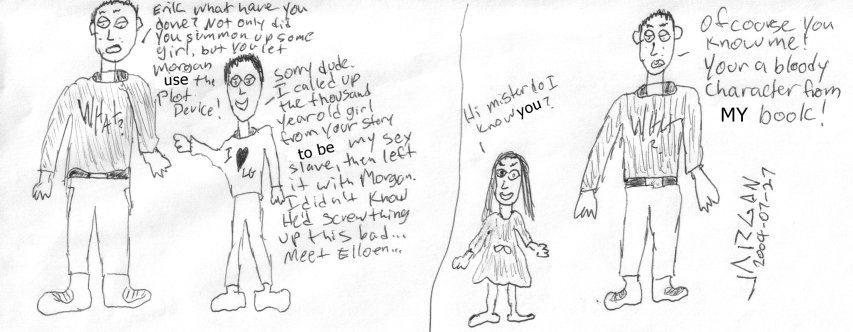 Erik what have you
done? Not only did
you summon up some
girl, but you let
Morgan
use the
Plot
Device!
WHAT?
Sorry dude.
I called up
the thousand
year old girl
from your story
to be my sex
slave, then left
it with Morgan.
I didn't know
He'd screw thing
up this bad...
Meet Elloen...
I ♥
LG
Hi mister do I
know you?
Of course you
know me!
Your a bloody
character from
MY book!
WHAT
?
JARGAN
2009-07-27